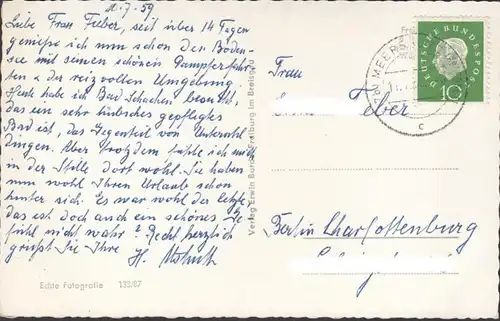 11.7.59
Liebe Frau Feber, seit über 14 Tagen
genieße ich nun schon den Boden-
see mit seinen schönen Dampferfahr-
ten u der reizvollen Umgebung
Heute habe ich Bad Schachen besucht,
das ein sehr hübsches gepflegtes
Bad ist, das Gegenteil von Unteruhl
dingen. Aber trotzdem fühle ich mich
in der Stille dort wohl. Sie haben
nun wohl Ihren Urlaub schon
hinter sich. Es war wohl der letzte,
das ist doch auch ein schönes Ge
fühl nicht wahr? Recht herzlich
grüßt Sie Ihre
H.
Echte Fotografie 133/87
Verlag Erwin Burda Freiburg im Breisgau
MEER
c
DEUTSCHE BUNDESPOST
10
Frau
Feber
Berlin Charlottenburg